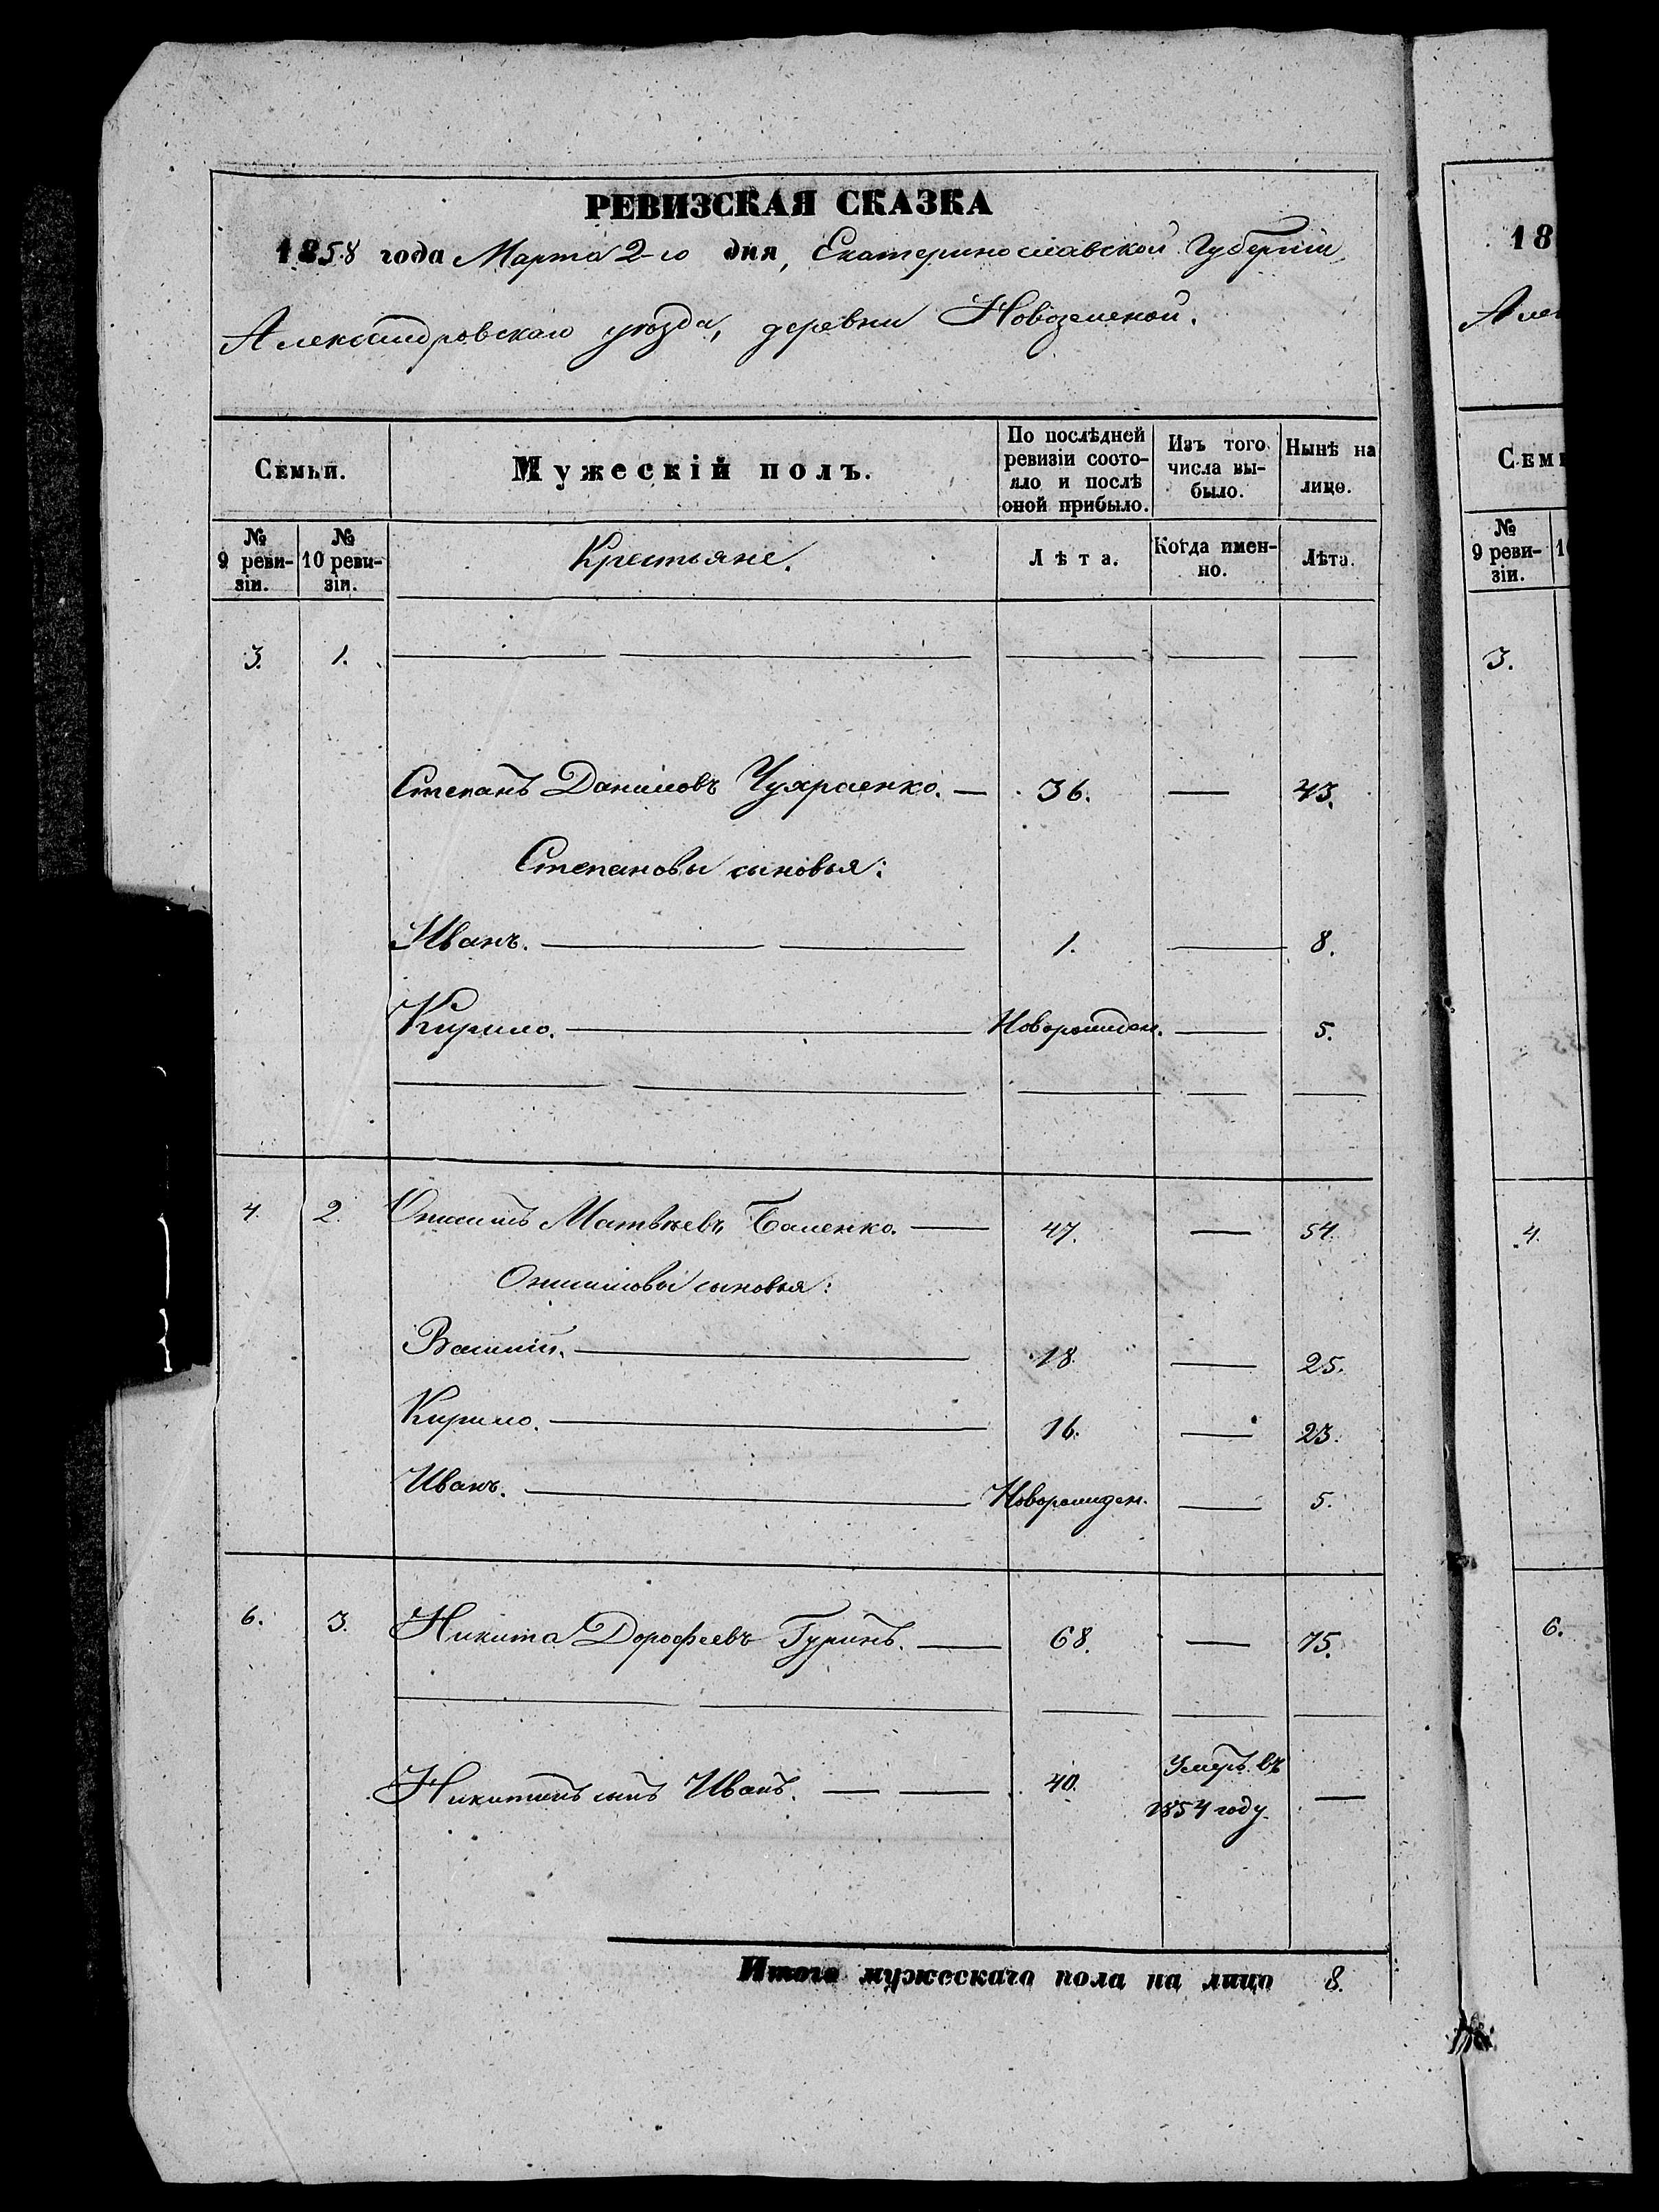 РЕВИЗСКАЯ СКАЗКА
1858 года Марта 2-го дня, Екатеринославской Губерніи,
Александровскаго уѣзда, деревни
Семьи.
Мужескій полъ.
По послѣдней ревизіи состояло и послѣ оной прибыло.
Изъ того числа выбыло.
Нынѣ на лице.
№ 9 ревизіи.
№ 10 ревизіи.
Крестьяне.
Лѣта.
Когда именно.
Лѣта.
3. 1.
Степанъ Даниловъ 36. — 43.
Степановы сыновья:
Иванъ. 1. — 8.
Кирило. Новорожден. — 5.
4. 2. Матвѣевъ Баленко. — 47. — 54.
сыновья:
Василій. 18. — 25.
Кирило. 16. — 23.
Иванъ. Новорожден. — 5.
6. 3. Никита Дорофеевъ Гуринъ. — 68. — 75.
Никитинъ сынъ Иванъ. — 40. Умеръ въ 1854 году. —
Итого мужескаго пола на лицо 8.
18
Але
Семь
№ 9 ревизіи.
3.
4.
6.